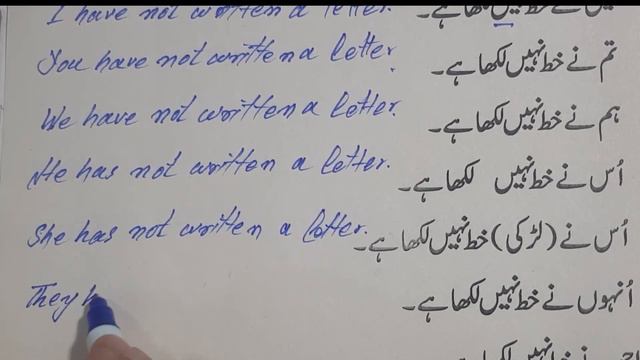 I have not written a letter. میں نے خط نہیں لکھا ہے۔
You have not written a letter. تم نے خط نہیں لکھا ہے۔
We have not written a letter. ہم نے خط نہیں لکھا ہے۔
He has not written a letter. اُس نے خط نہیں لکھا ہے۔
She has not written a letter. اُس نے (لڑکی) خط نہیں لکھا ہے۔
They h اُنہوں نے خط نہیں لکھا ہے۔
نے خط نہیں لکھا ہے۔